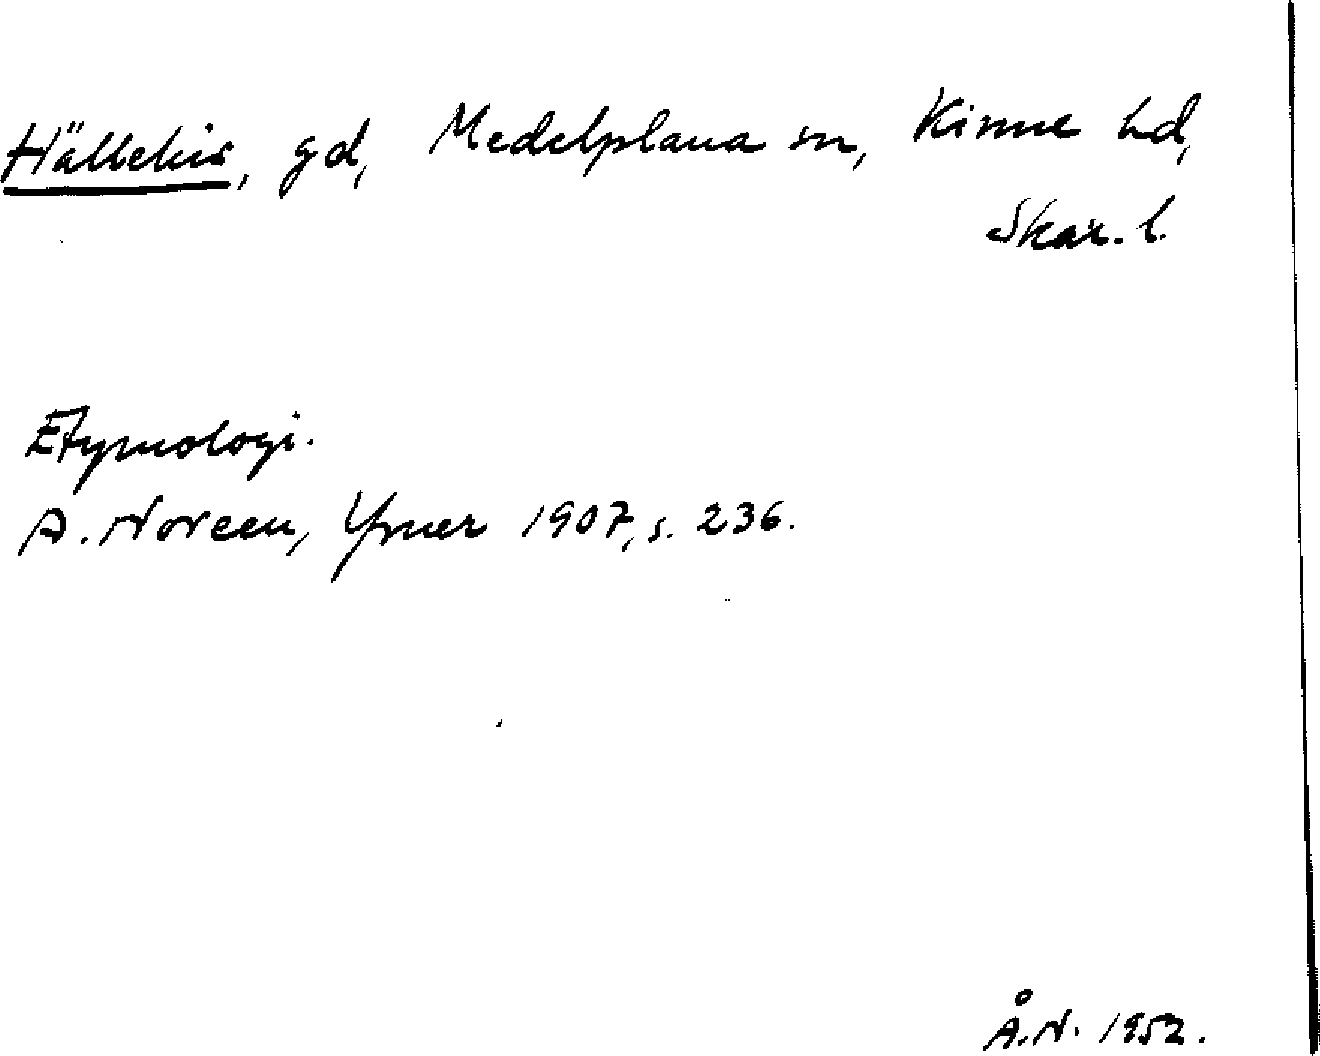 Hällekis, gd, Medelplana sn, Kinne hd,
Skar. l.
Etymologi.
A. Noreen, Ymer 1907, s. 236.
Å.N. 1952.